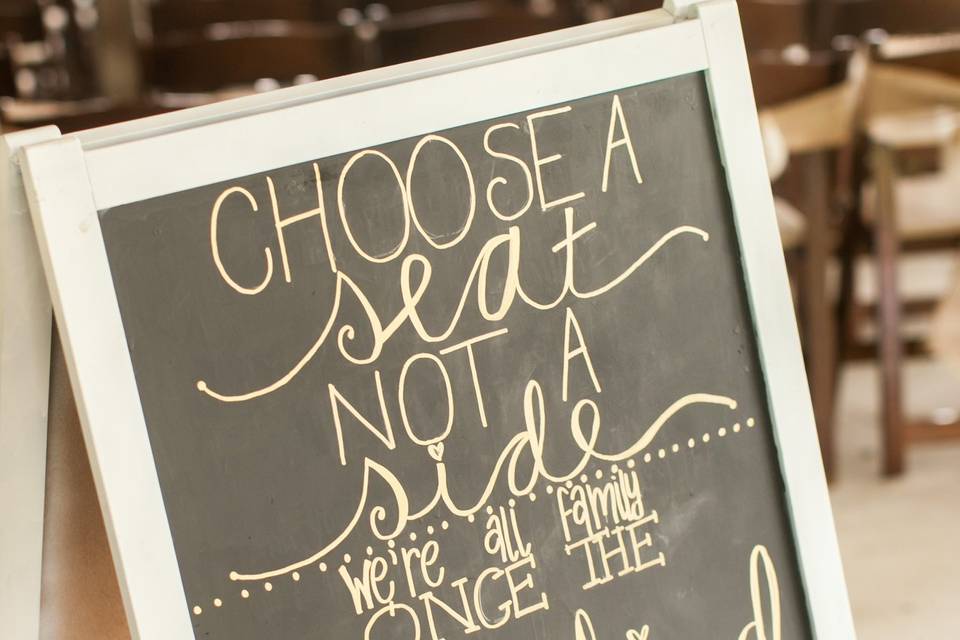 CHOOSE A
seat
NOT A
side
we're all family
ONCE THE